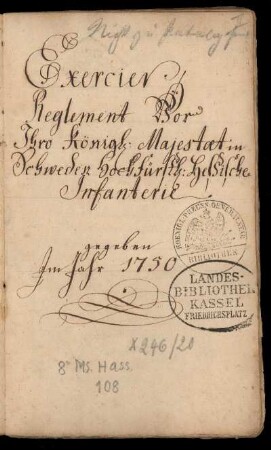 Nicht zu Katalog
Exercier
Reglement Vor
Ihro Königl: Majestat in
Schweden Hochfürstl: Heßische
Infanterie
gegeben
Im Jahr 1750
BIBLIOTHEK
LANDES-
BIBLIOTHEK
KASSEL
FRIEDRICHSPLATZ
X246/20
8° Ms. Hass.
108